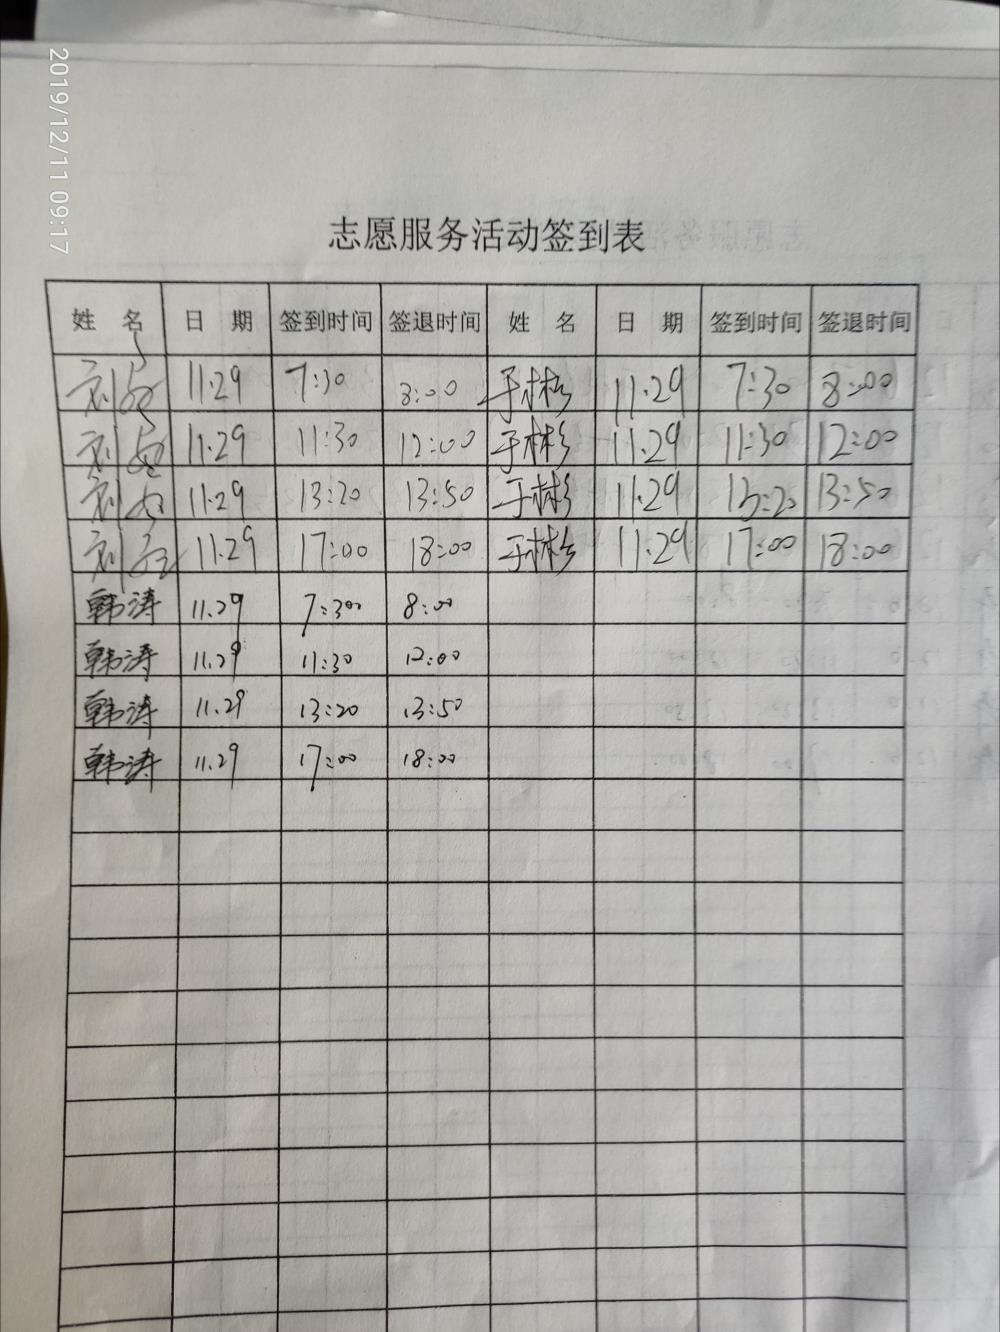 2019/12/11 09:17
志愿服务活动签到表
姓 名 日 期 签到时间 签退时间 姓 名 日 期 签到时间 签退时间
刘 11.29 7:30 8:00 于彬彬 11.29 7:30 8:00
刘 11.29 11:30 12:00 于彬彬 11.29 11:30 12:00
刘 11.29 13:20 13:50 于彬彬 11.29 13:20 13:50
刘 11.29 17:00 18:00 于彬彬 11.29 17:00 18:00
韩涛 11.29 7:30 8:00
韩涛 11.29 11:30 12:00
韩涛 11.29 13:20 13:50
韩涛 11.29 17:00 18:00